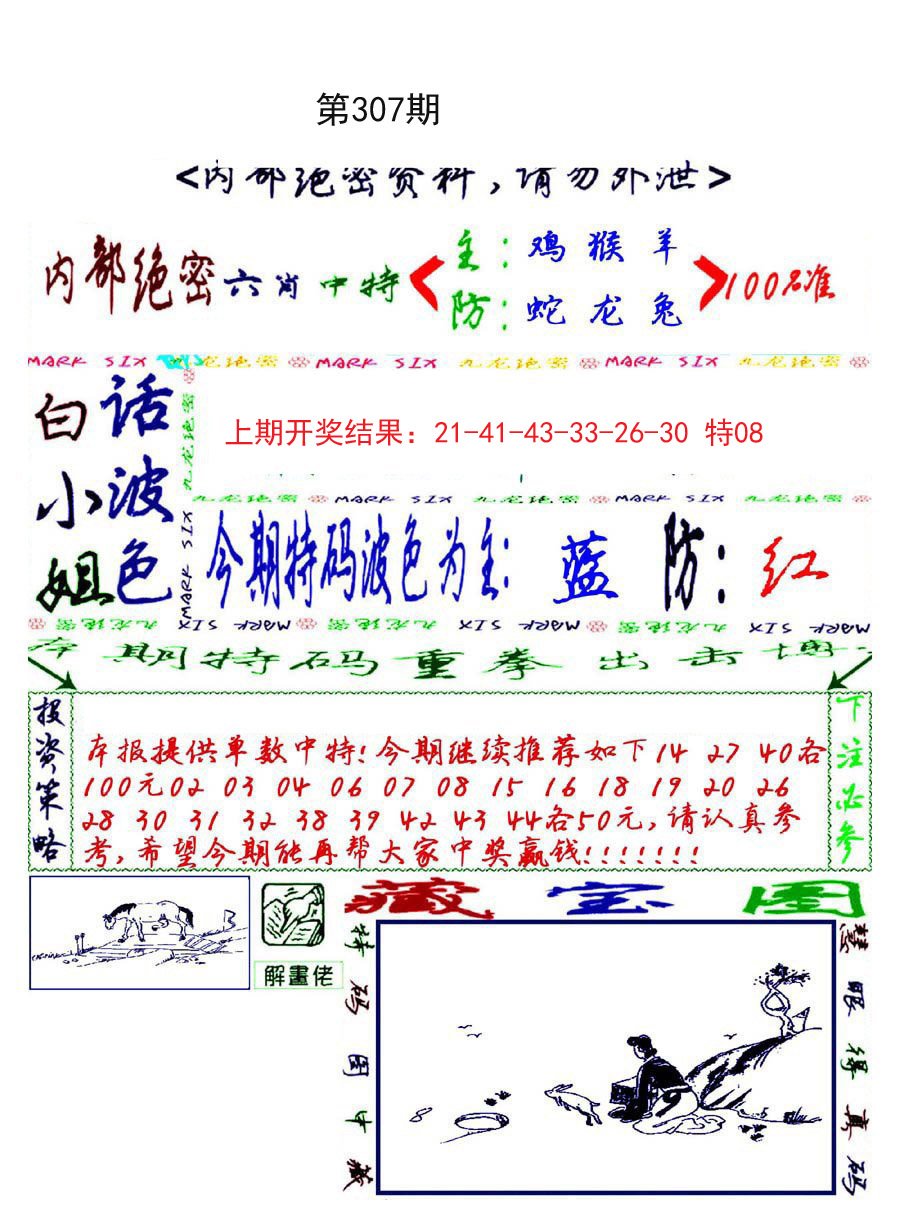 第307期
<内部绝密资料,请勿外泄>
内部绝密六肖中特
主:鸡猴羊
防:蛇龙兔
100%准
MARK SIX 九龙绝密 MARK SIX 九龙绝密 MARK SIX 九龙绝密
白小姐
话波色
九龙绝密
MARK SIX
上期开奖结果：21-41-43-33-26-30 特08
九龙绝密 MARK SIX 九龙绝密 MARK SIX 九龙绝密
今期特码波色为主: 蓝 防: 红
九龙绝密 MARK SIX 九龙绝密 MARK SIX 九龙绝密 MARK SIX
本期特码重拳出击博
投资策略
本报提供单数中特!今期继续推荐如下14 27 40各
100元02 03 04 06 07 08 15 16 18 19 20 26
28 30 31 32 38 39 42 43 44各50元,请认真参
考,希望今期能再帮大家中奖赢钱!!!!!!!
下注必参
解畫佬
藏宝图
特码图中藏
慧眼得真码